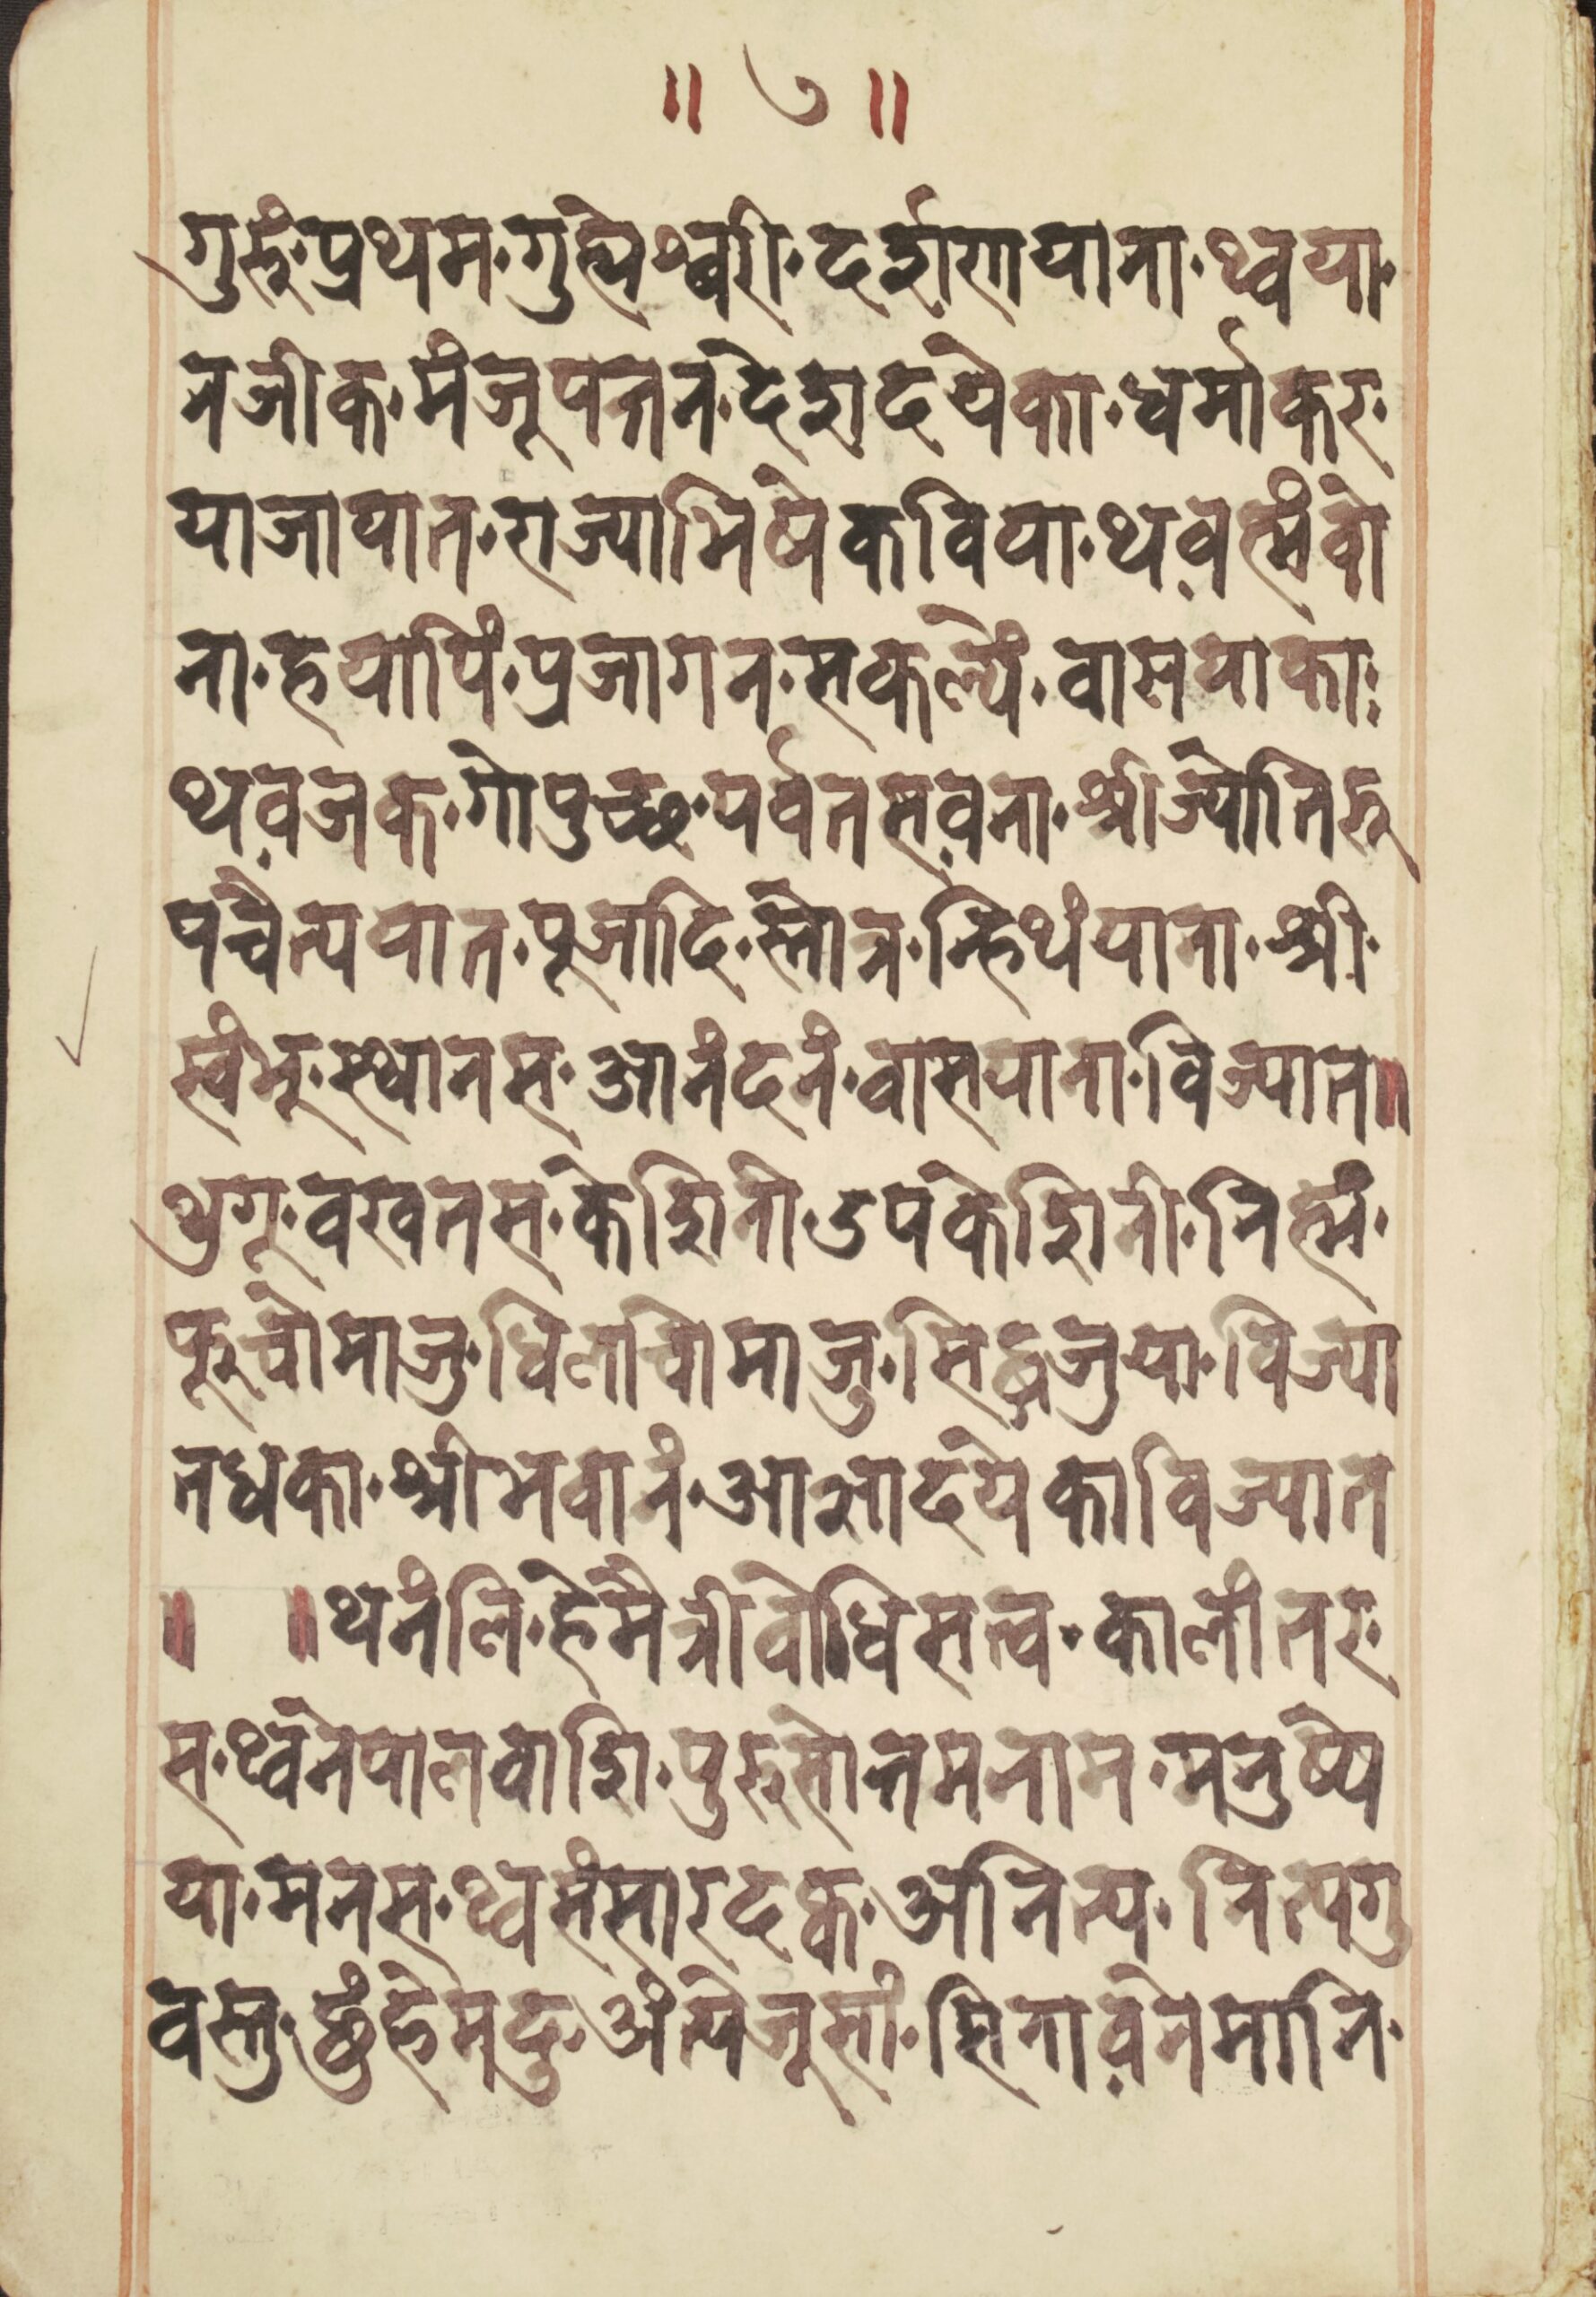 ॥ ७ ॥
गुरुं·प्रथम·गुह्येश्वरी·दर्शणयाना·थ्वया·
नजीक·मंजूपत्तन·देशदयेका·धर्माकर·
याजायात·राज्याभिषेकविया·थव़त्मंवो
ना·हयापिं·प्रजागन·सकल्यें·वासयाका·
थव़जक·गोपुच्छ·पर्वतसव़ना·श्रीज्योतिरु
पचैत्ययात·पूजादि·स्तोत्र·न्हिथंयाना·श्री·
स्वंभू·स्थानस·आनंदनं·वासयाना·विज्यात॥
थुगू·वखतस·केशिनी·उपकेशिनी·निह्मं·
फूचोमाजु·धिलाचोमाजु·सिद्धजुया·विज्या
तधका·श्रीभवानं·आज्ञादयेकाविज्यात
॥ ॥थनंलि·हेमैत्रीवोधिसत्त्व·कालांतर·
स·थ्वनेपालवाशि·पुरुसोत्तमनाम·मनुष्ये
या·मनस·थ्वसंसारदक्व·अनित्य·नित्यगु
वस्तु·छुंहेमदु·अंत्येजूसां·सिनाव़नेमानि·